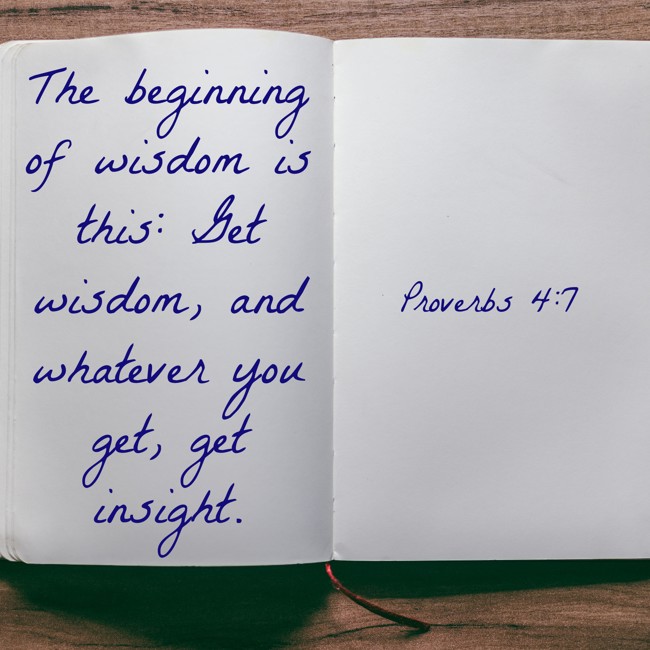 The beginning
of wisdom is
this: Get
wisdom, and
whatever you
get, get
insight.
Proverbs 4:7